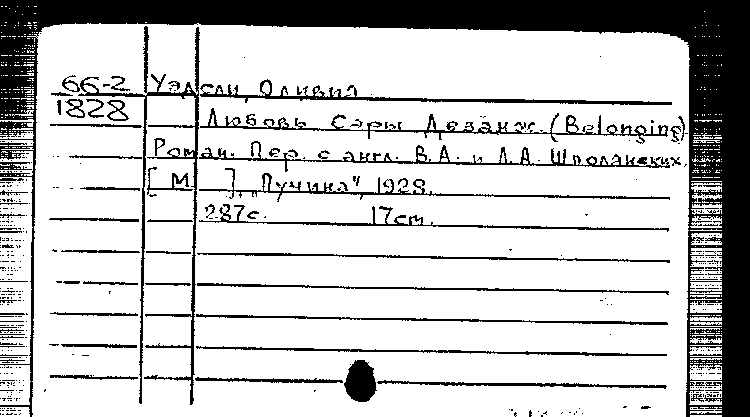 66-2 Уэдсли, Оливия
1828 Любовь Сары Дезанж. (Belonging)
Роман. Пер. с англ. В.А. и Л.А. Шполанских.
[М ]. „Пучина“, 1928.
287с. 17cm.